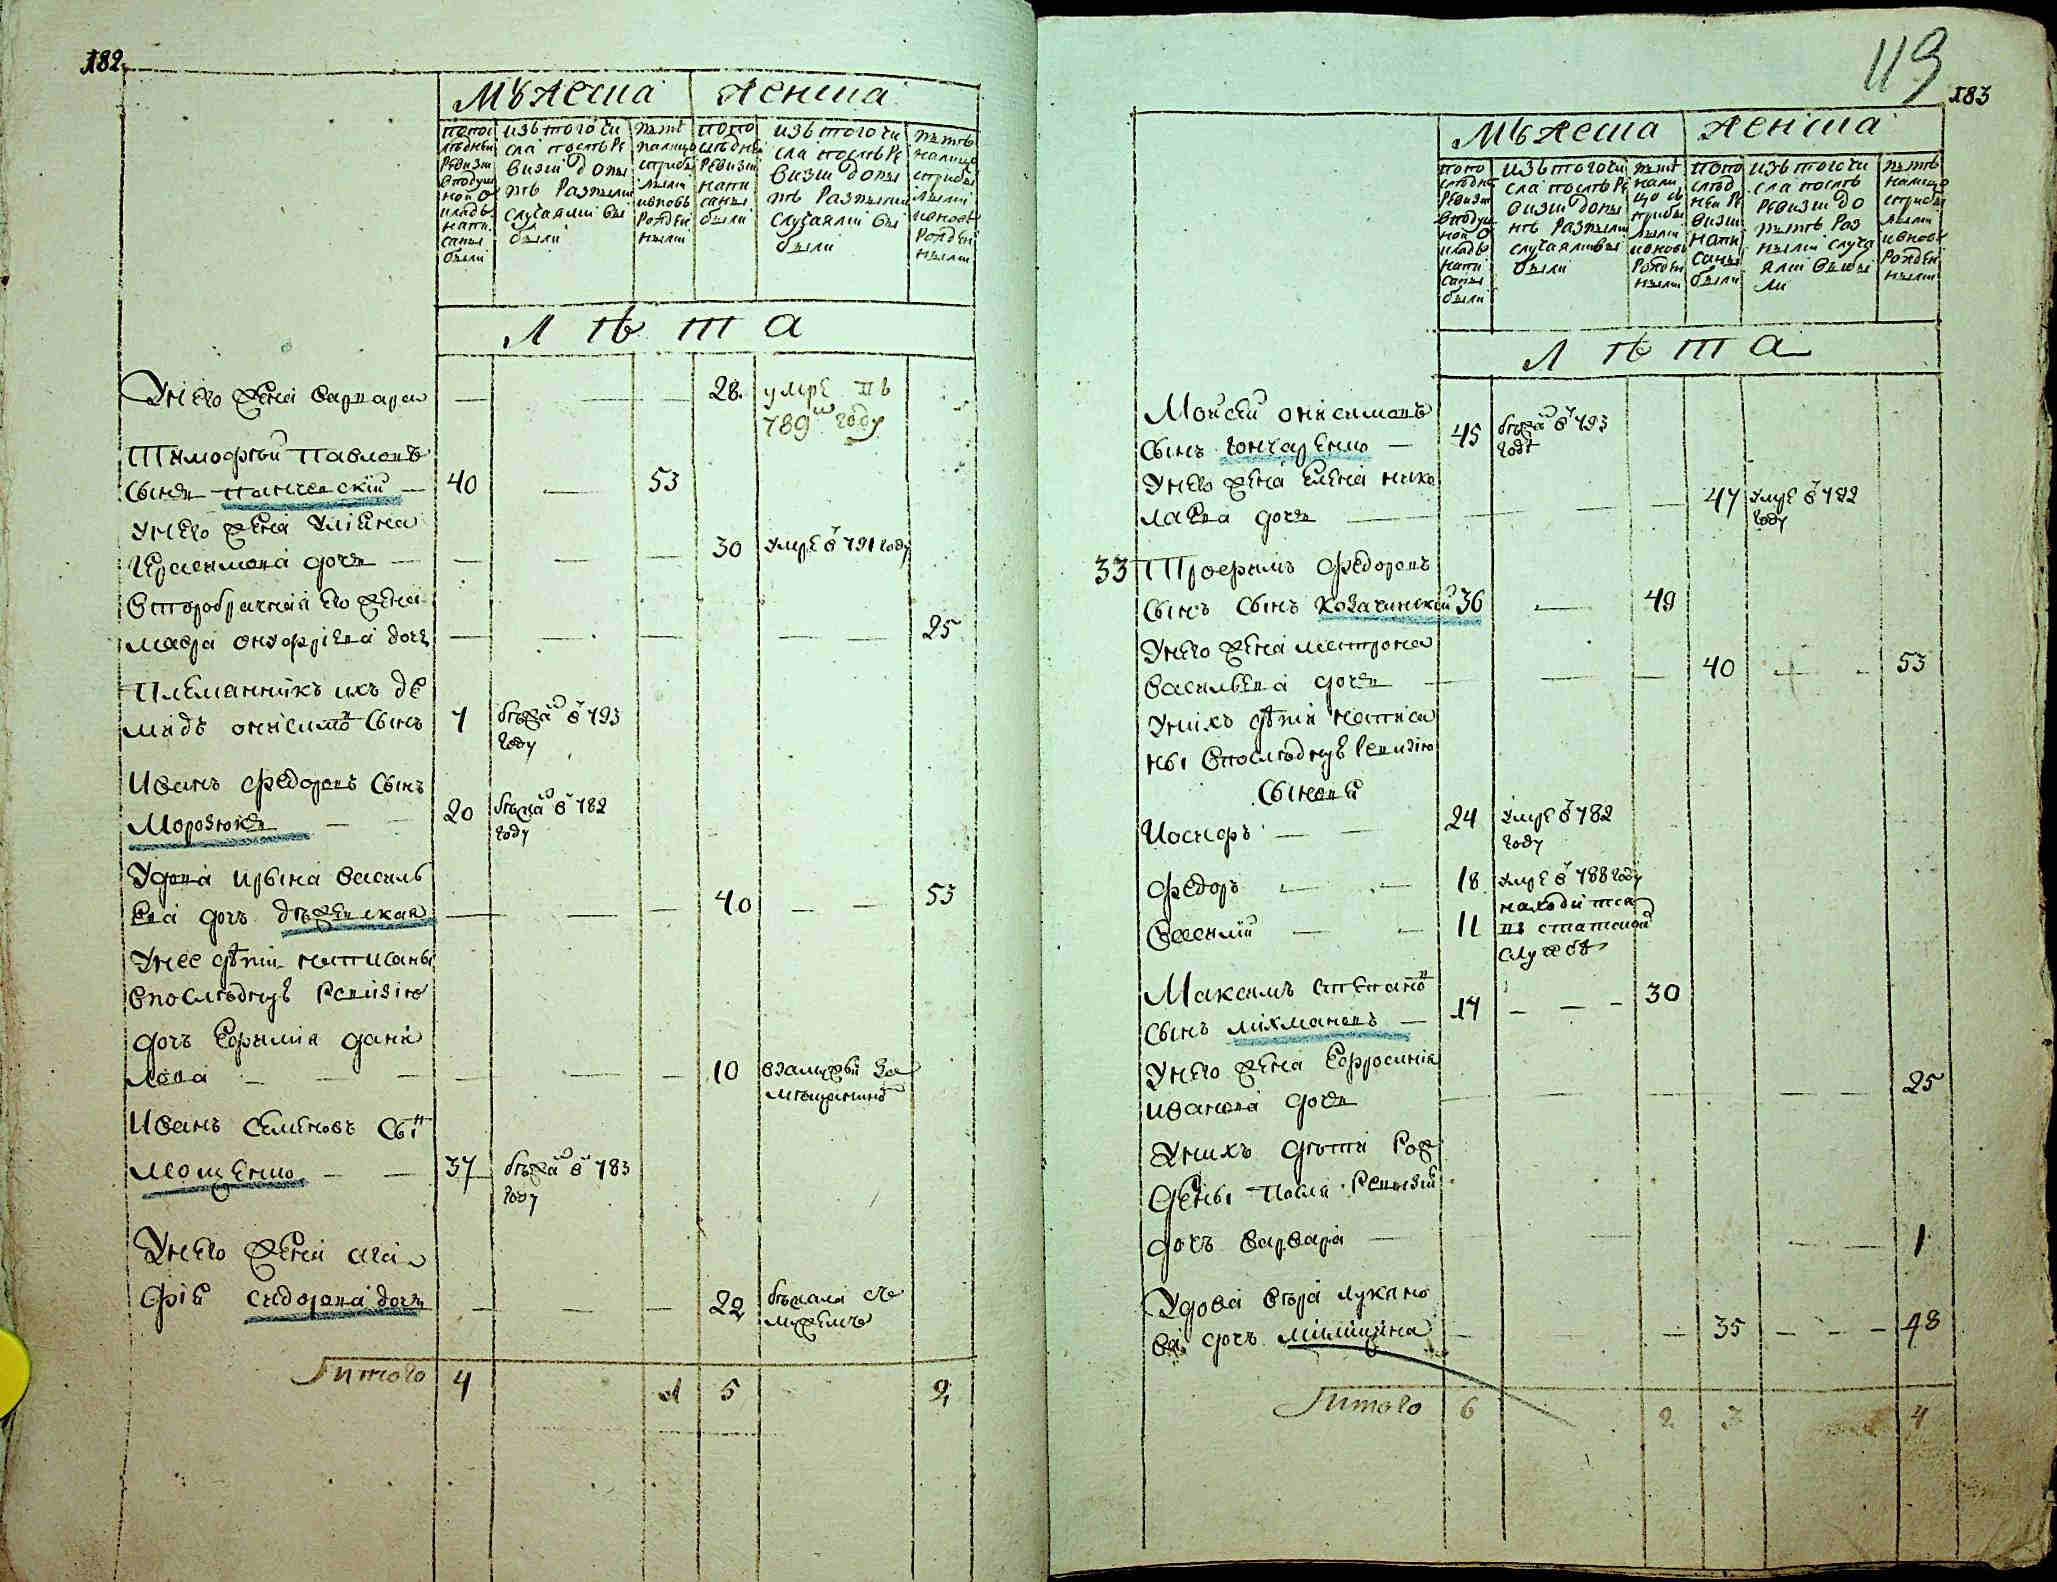 182
Мужеска женска
попос лѣдней ревизіи в подуш ной ѡ кладъ напи саны были
изъ того чи сла послѣ ре визіи до ны нѣ разными случаями вы были
нынѣ на лицо с прибы лыми и вновь рожден ными
по по слѣдней ревизіи напи саны были
изъ того чи сла послѣ ре визіи до ны нѣ разными случаями вы были
нынѣ на лицо с прибы лыми и вновь рожден ными
Лѣта
У него жена варвара — — 28 умре въ
789м году
Тимофѣй павловъ
сынъ — 40 — 53
У него жена улияна
герасимова дочь — — — — 30 умре в 791 году
второбрачная его жена
мавра онуфріева дочь — — — — — 25
Племянникъ ихъ де
мидъ онисимов сынъ 7 бѣжал в 793
году
Иванъ федоровъ сынъ
Морозюкъ — — 20 бѣжал в 782
году
Удова ирына василь
ева дочь — — — 40 — — 53
У нее дѣти написаны
в последнюю ревизию
дочь ефимия дани
лова — — — — — 10 в замужъи за
мещанином
Иванъ семеновъ сын
мощенко — — 37 бѣжал в 783
году
У него жена ага
фия сидорова дочь — — — 22 бѣжала с
мужемъ
Итого 4 1 5 2
119
183
Мужеска женска
по по слѣдне ревизіи в подуш ной ѡ кладъ напи саны были
изъ того чи сла послѣ ре визіи до ны нѣ разными случаями вы были
нынѣ нали цо съ прибы лыми и вновь рожден ными
по по слѣд ней ре визіи напи саны были
изъ того чи сла послѣ ревизіи до нынѣ раз ными случа ями выбы ли
нынѣ налицо с прибы лыми и вновь рожден ными
Лѣта
Мойсей онисимовъ
сынъ гончаренко — 45 бѣжал в 793
годѣ
У него жена елена нико
лаева дочь — — — — 47 умре в 792
году
33 Трофимъ федоровъ
сынъ сынъ козачинский 36 — 49
У него жена матрона
васильева дочь — — — — 40 — — 53
У нихъ дѣти написа
ны в последнюю ревизию
сыновя
Иосифъ — — 24 умре в 782
году
федоръ — — 18 умре в 788 году
Василий — — 11 находится
въ статской
службѣ
Максимъ степанов
сынъ михмановъ — 17 — — — 30
У него жена ефросиния
иванова дочь — — — — — — 25
У нихъ дѣти рож
дены после ревизии
дочь варвара — — — — 1
Удова вера лукано
ва дочь — — — 35 — — — 48
Итого 6 2 3 4